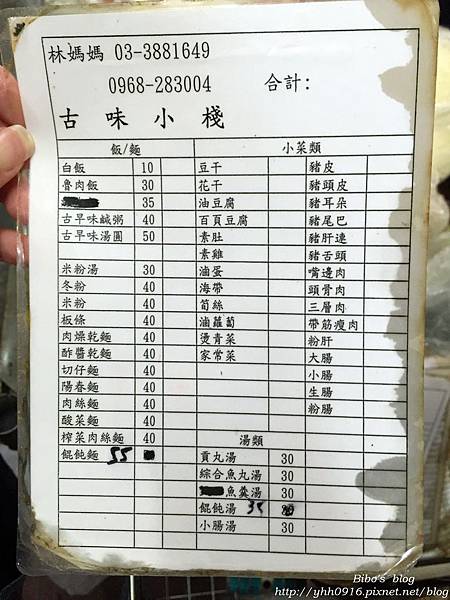 林媽媽 03-3881649
0968-283004 合計:
古味小棧
飯/麵
白飯 10
魯肉飯 30
35
古早味鹹粥 40
古早味湯圓 50
米粉湯 30
冬粉 40
米粉 40
板條 40
肉燥乾麵 40
酢醬乾麵 40
切仔麵 40
陽春麵 40
肉絲麵 40
酸菜麵 40
榨菜肉絲麵 40
餛飩麵 55
小菜類
豆干
花干
油豆腐
百頁豆腐
素肚
素雞
滷蛋
海帶
筍絲
滷蘿蔔
燙青菜
家常菜
豬皮
豬頭皮
豬耳朵
豬尾巴
豬肝連
豬舌頭
嘴邊肉
頭骨肉
三層肉
帶筋瘦肉
粉肝
大腸
小腸
生腸
粉腸
湯類
貢丸湯 30
綜合魚丸湯 30
魚羹湯 30
餛飩湯 35
小腸湯 30
Bibo's blog
http://yhh0916.pixnet.net/blog